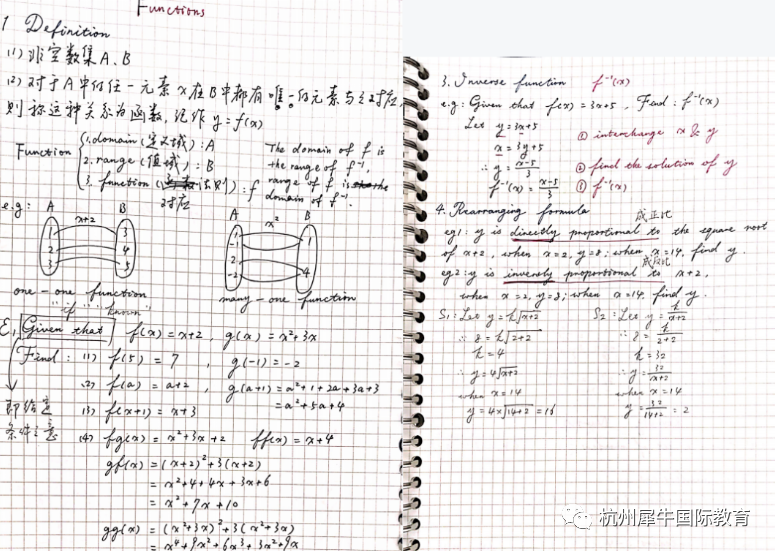 Functions
1 Definition
(1) 非空数集A、B
(2) 对于A中的任一元素x在B中都有唯一的元素与之对应,
则称这种关系为函数,记作 y=f(x)
Function { 1. domain (定义域) : A
2. range (值域) : B
3. function (对应法则) : f
The domain of f is
the range of f⁻¹,
range of f is the
domain of f⁻¹.
e.g: A x+2 B
1 3
2 4
3 5
one-one function
A x² B
1
-1 1
2
-2 4
many-one function
"if" "known"
E.g Given that f(x)=x+2, g(x)=x²+3x
Find: (1) f(5)=7, g(-1)=-2
(2) f(a)=a+2, g(a+1)=a²+1+2a+3a+3
=a²+5a+4
即给定
条件之意
(3) f(x+1)=x+3
(4) fg(x)=x²+3x+2 ff(x)=x+4
gf(x)=(x+2)²+3(x+2)
=x²+4+4x+3x+6
=x²+7x+10
gg(x)=(x²+3x)²+3(x²+3x)
=x⁴+9x²+6x³+3x²+9x
3. Inverse function f⁻¹(x)
e.g: Given that f(x)=3x+5, Find: f⁻¹(x)
Let y=3x+5 ① interchange x & y
x=3y+5
∴ y=x-5/3 ② find the solution of y
f⁻¹(x)=x-5/3 ③ f⁻¹(x)
4. Rearranging formula
成正比
eg1: y is directly proportional to the square root
of x+2, when x=2, y=8; when x=14, find y.
成反比
eg2: y is inversly proportional to x+2,
when x=2, y=8; when x=14, find y.
S₁: Let y=k√x+2
∴ 8=k√2+2
k=4
∴ y=4√x+2
when x=14
y=4×√14+2=16
S₂: Let y=k/x+2
∴ 8=k/2+2
k=32
∴ y=32/x+2
when x=14
y=32/14+2=2
杭州犀牛国际教育